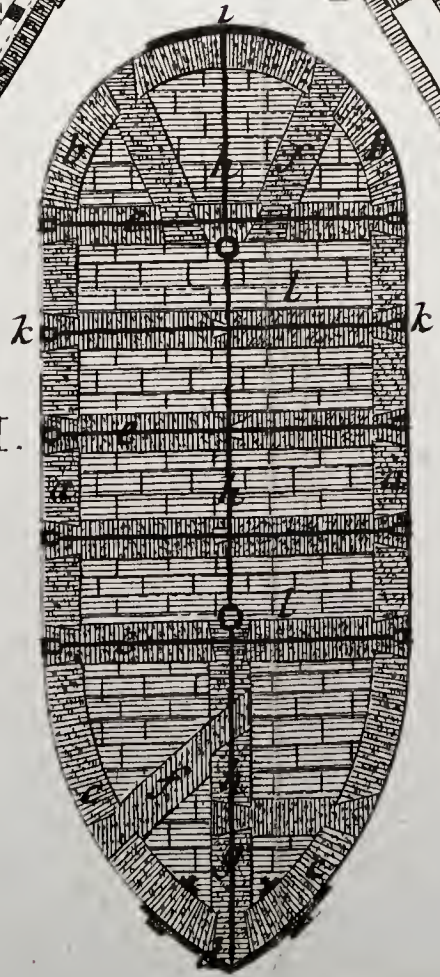 i
b h f b
e
l
k k
e
I.
a h a
l
e
c f h
g c